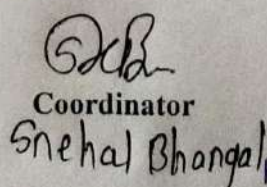 Coordinator
Snehal Bhangal